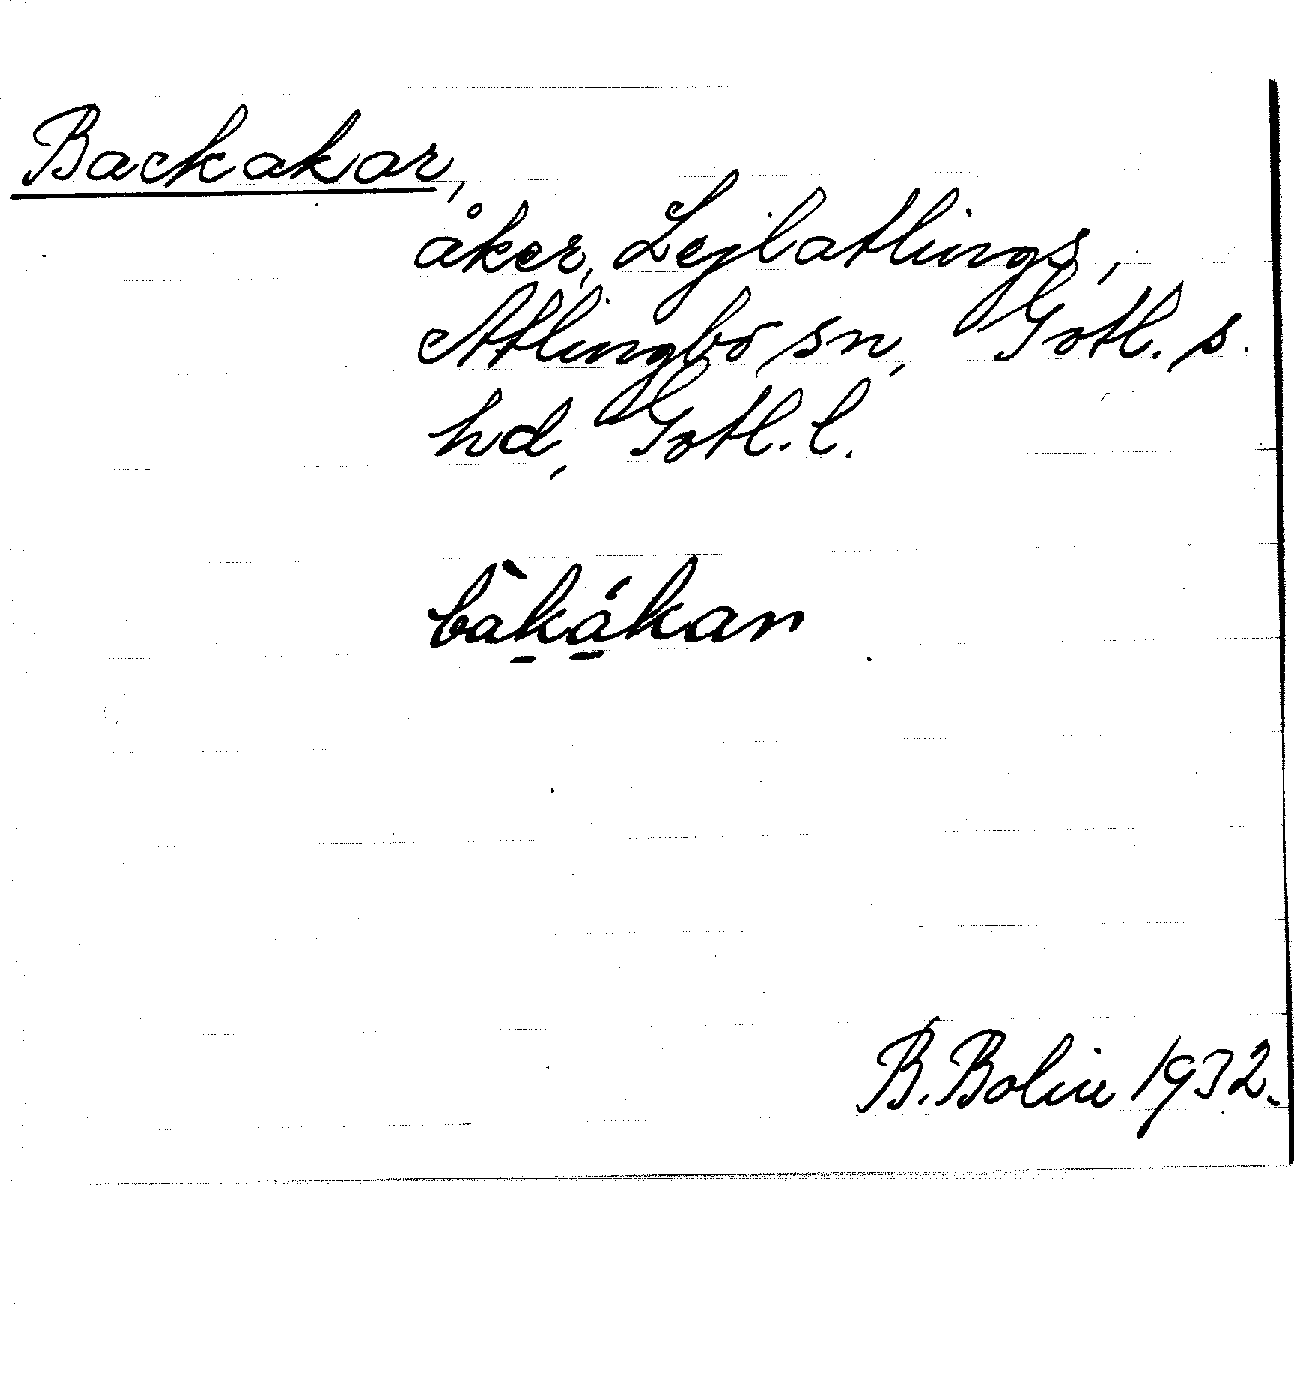 Backakar,
åker, Lejlatlings,
Atlingbo sn, Gotl. s.
hd, Gotl. l.
bàk̠á̠kan
B. Bolin 1932.